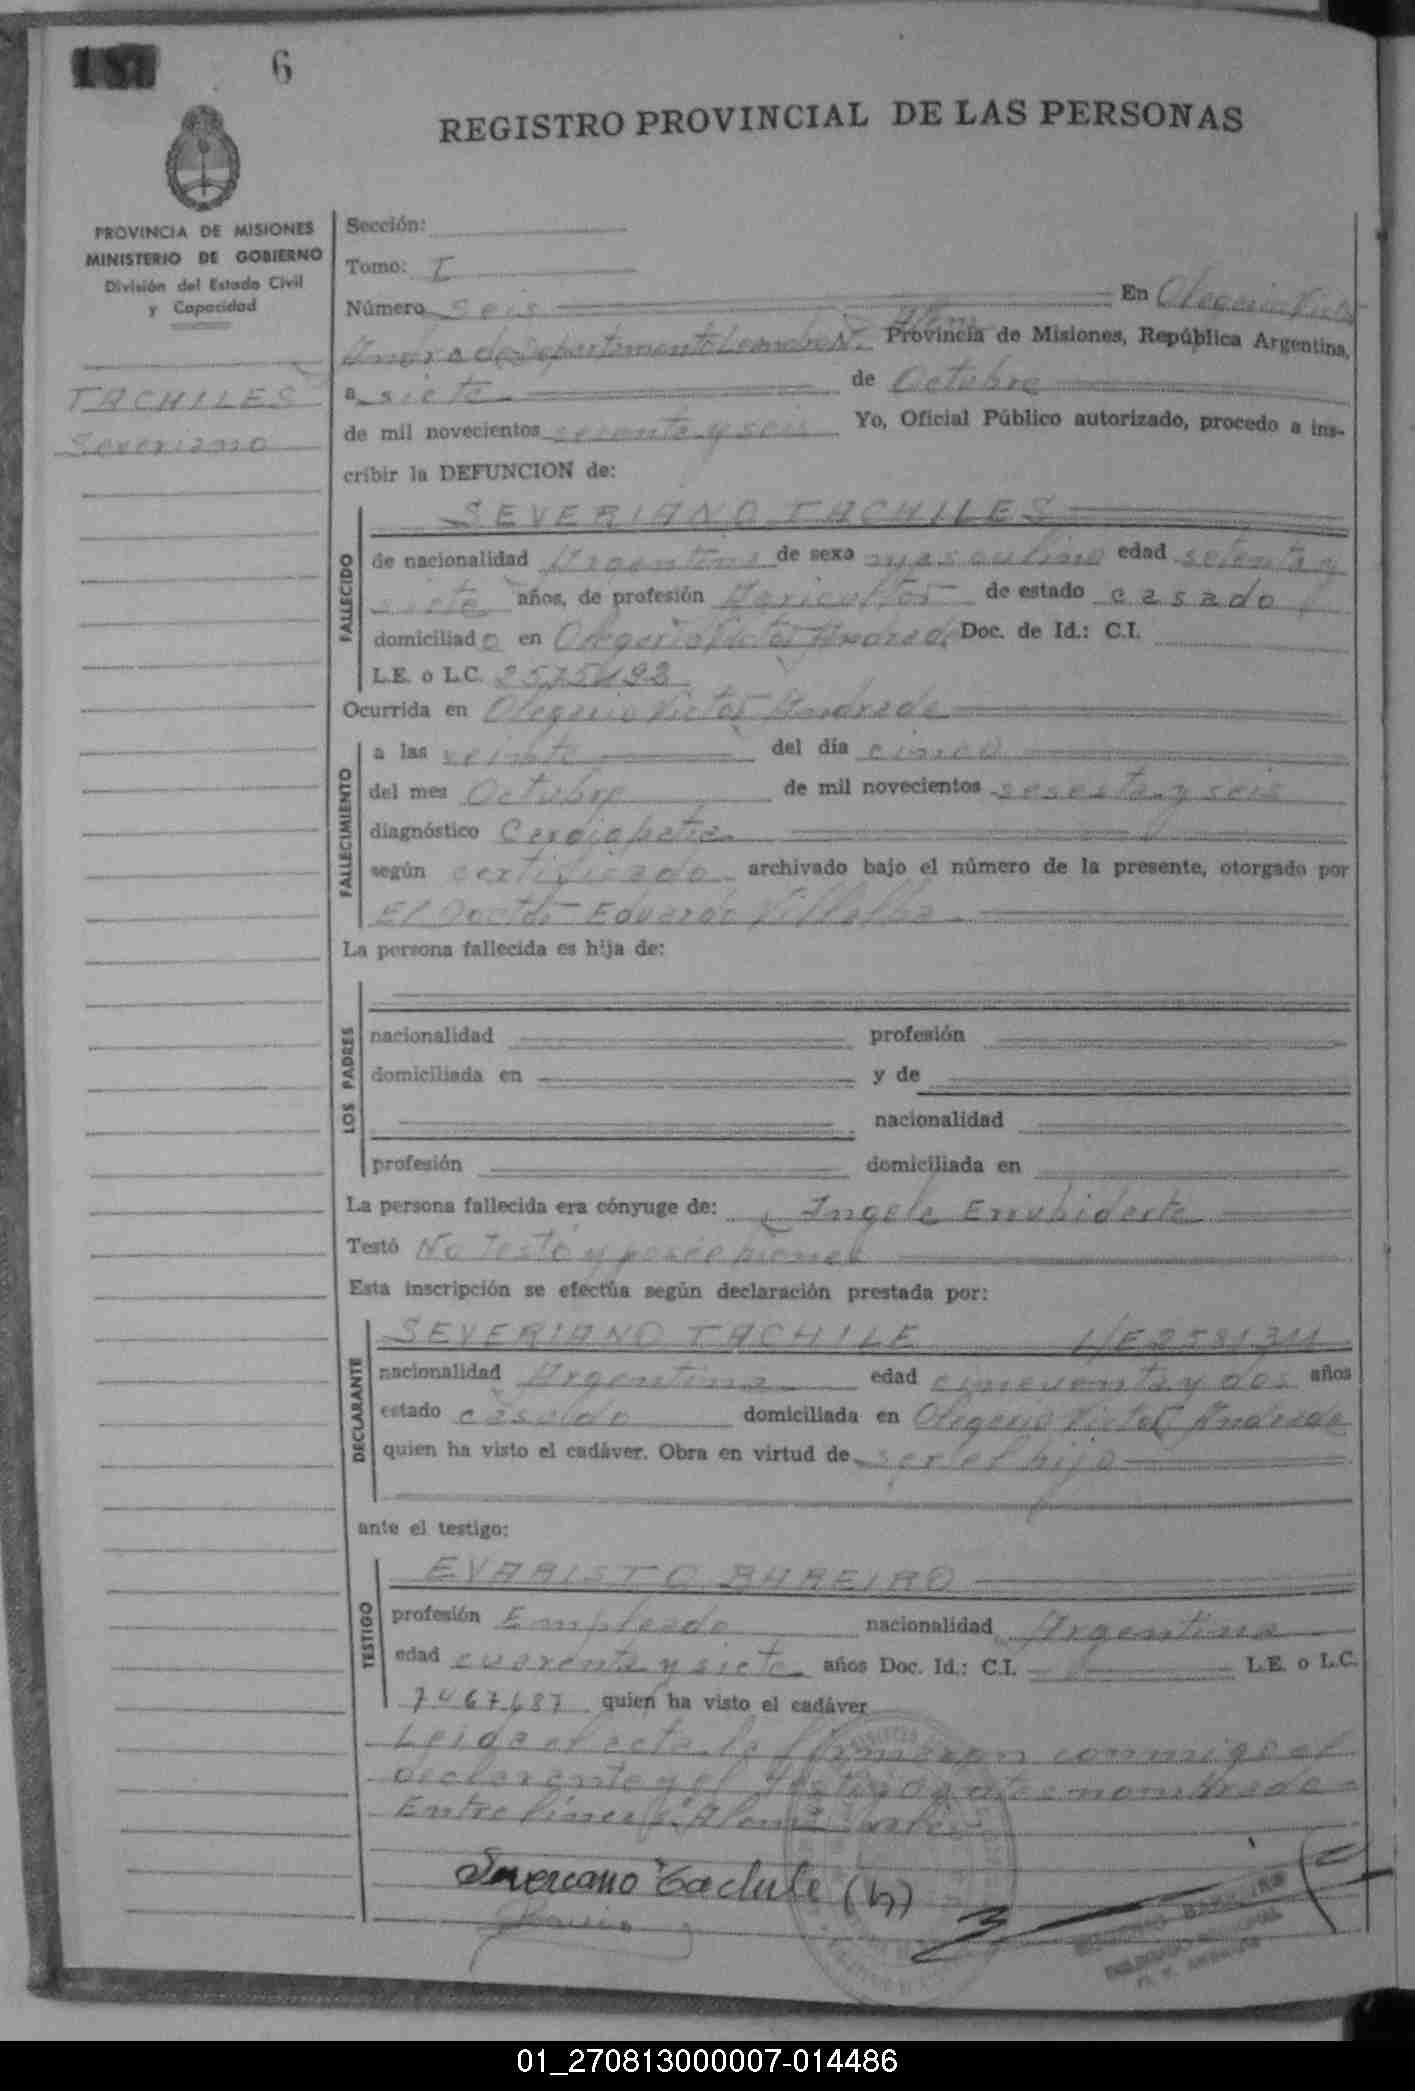 6
REGISTRO PROVINCIAL DE LAS PERSONAS
PROVINCIA DE MISIONES
MINISTERIO DE GOBIERNO
División del Estado Civil
y Capacidad
TACHILES
Severiano
Sección:
Tomo: I
Número seis En Olegario Victor
Alem
Andrade Departamento Leandro N. Provincia de Misiones, República Argentina,
a siete de Octubre
de mil novecientos sesenta y seis Yo, Oficial Público autorizado, procedo a ins-
cribir la DEFUNCION de:
FALLECIDO
SEVERIANO TACHILES
de nacionalidad Argentina de sexo masculino edad setenta y
siete años, de profesión Agricultor de estado casado
domiciliado en Olegario Victor Andrade Doc. de Id.: C.I.
L.E. o L.C.
Ocurrida en Olegario Victor Andrade
FALLECIMIENTO
a las veinte del día cinco
del mes Octubre de mil novecientos sesenta y seis
diagnóstico
según certificado archivado bajo el número de la presente, otorgado por
El Doctor Eduardo Villalba
La persona fallecida es hija de:
LOS PADRES
nacionalidad profesión
domiciliada en y de
nacionalidad
profesión domiciliada en
La persona fallecida era cónyuge de: Angela
Testó No testó y posee bienes
Esta inscripción se efectúa según declaración prestada por:
DECLARANTE
SEVERIANO TACHILE
nacionalidad Argentina edad cincuenta y dos años
estado casado domiciliada en Olegario Victor Andrade
quien ha visto el cadáver. Obra en virtud de ser el hijo
ante el testigo:
TESTIGO
EVARISTO BAREIRO
profesión Empleado nacionalidad Argentina
edad cuarenta y siete años Doc. Id.: C.I. L.E. o L.C.
7467687 quien ha visto el cadáver
Leida el acta la firmaron conmigo el
declarante y el testigo antes nombrado
Entre lineas: Alem: vale
Severiano Tachile (h)
01_270813000007-014486